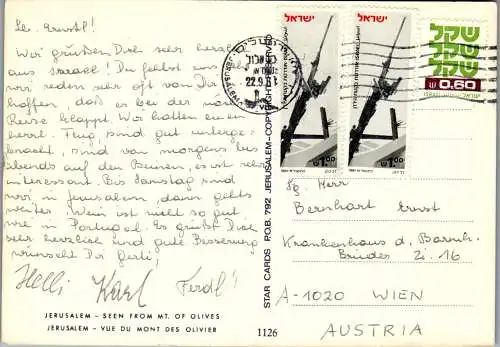 Lb. Ernstl!
Wir grüßen Dich sehr herzl.
aus Israel! Du fehlst uns
wir reden sehr oft von Dir
hoffen, dass es bei der näch
Reise klappt. Wir hatten einen
herrl. Flug, sind gut unterge-
bracht, sind von morgens bis
abends auf den Beinen, es ist sehr
interessant. Bis Samstag sind
wir in Jerusalem, dann gehts
weiter. Wein ist nicht so gut
wie in Portugal. Es grüßt Dich
sehr herzlich und gute Besserung
wünscht Dir Gerti!
Helli Karl Ferdl!
JERUSALEM – SEEN FROM MT. OF OLIVES
JERUSALEM – VUE DU MONT DES OLIVIER
1126
STAR CARDS P.O.B. 792 JERUSALEM-COPYRIGHT RESERVED
ישראל
ישראל
1.00
1.00
שקל
שקל
שקל
0.60
22.9.81
Sg. Herr
Bernhart Ernst
Krankenhaus d. Barmh.
Brüder Zi. 16
A-1020 WIEN
AUSTRIA